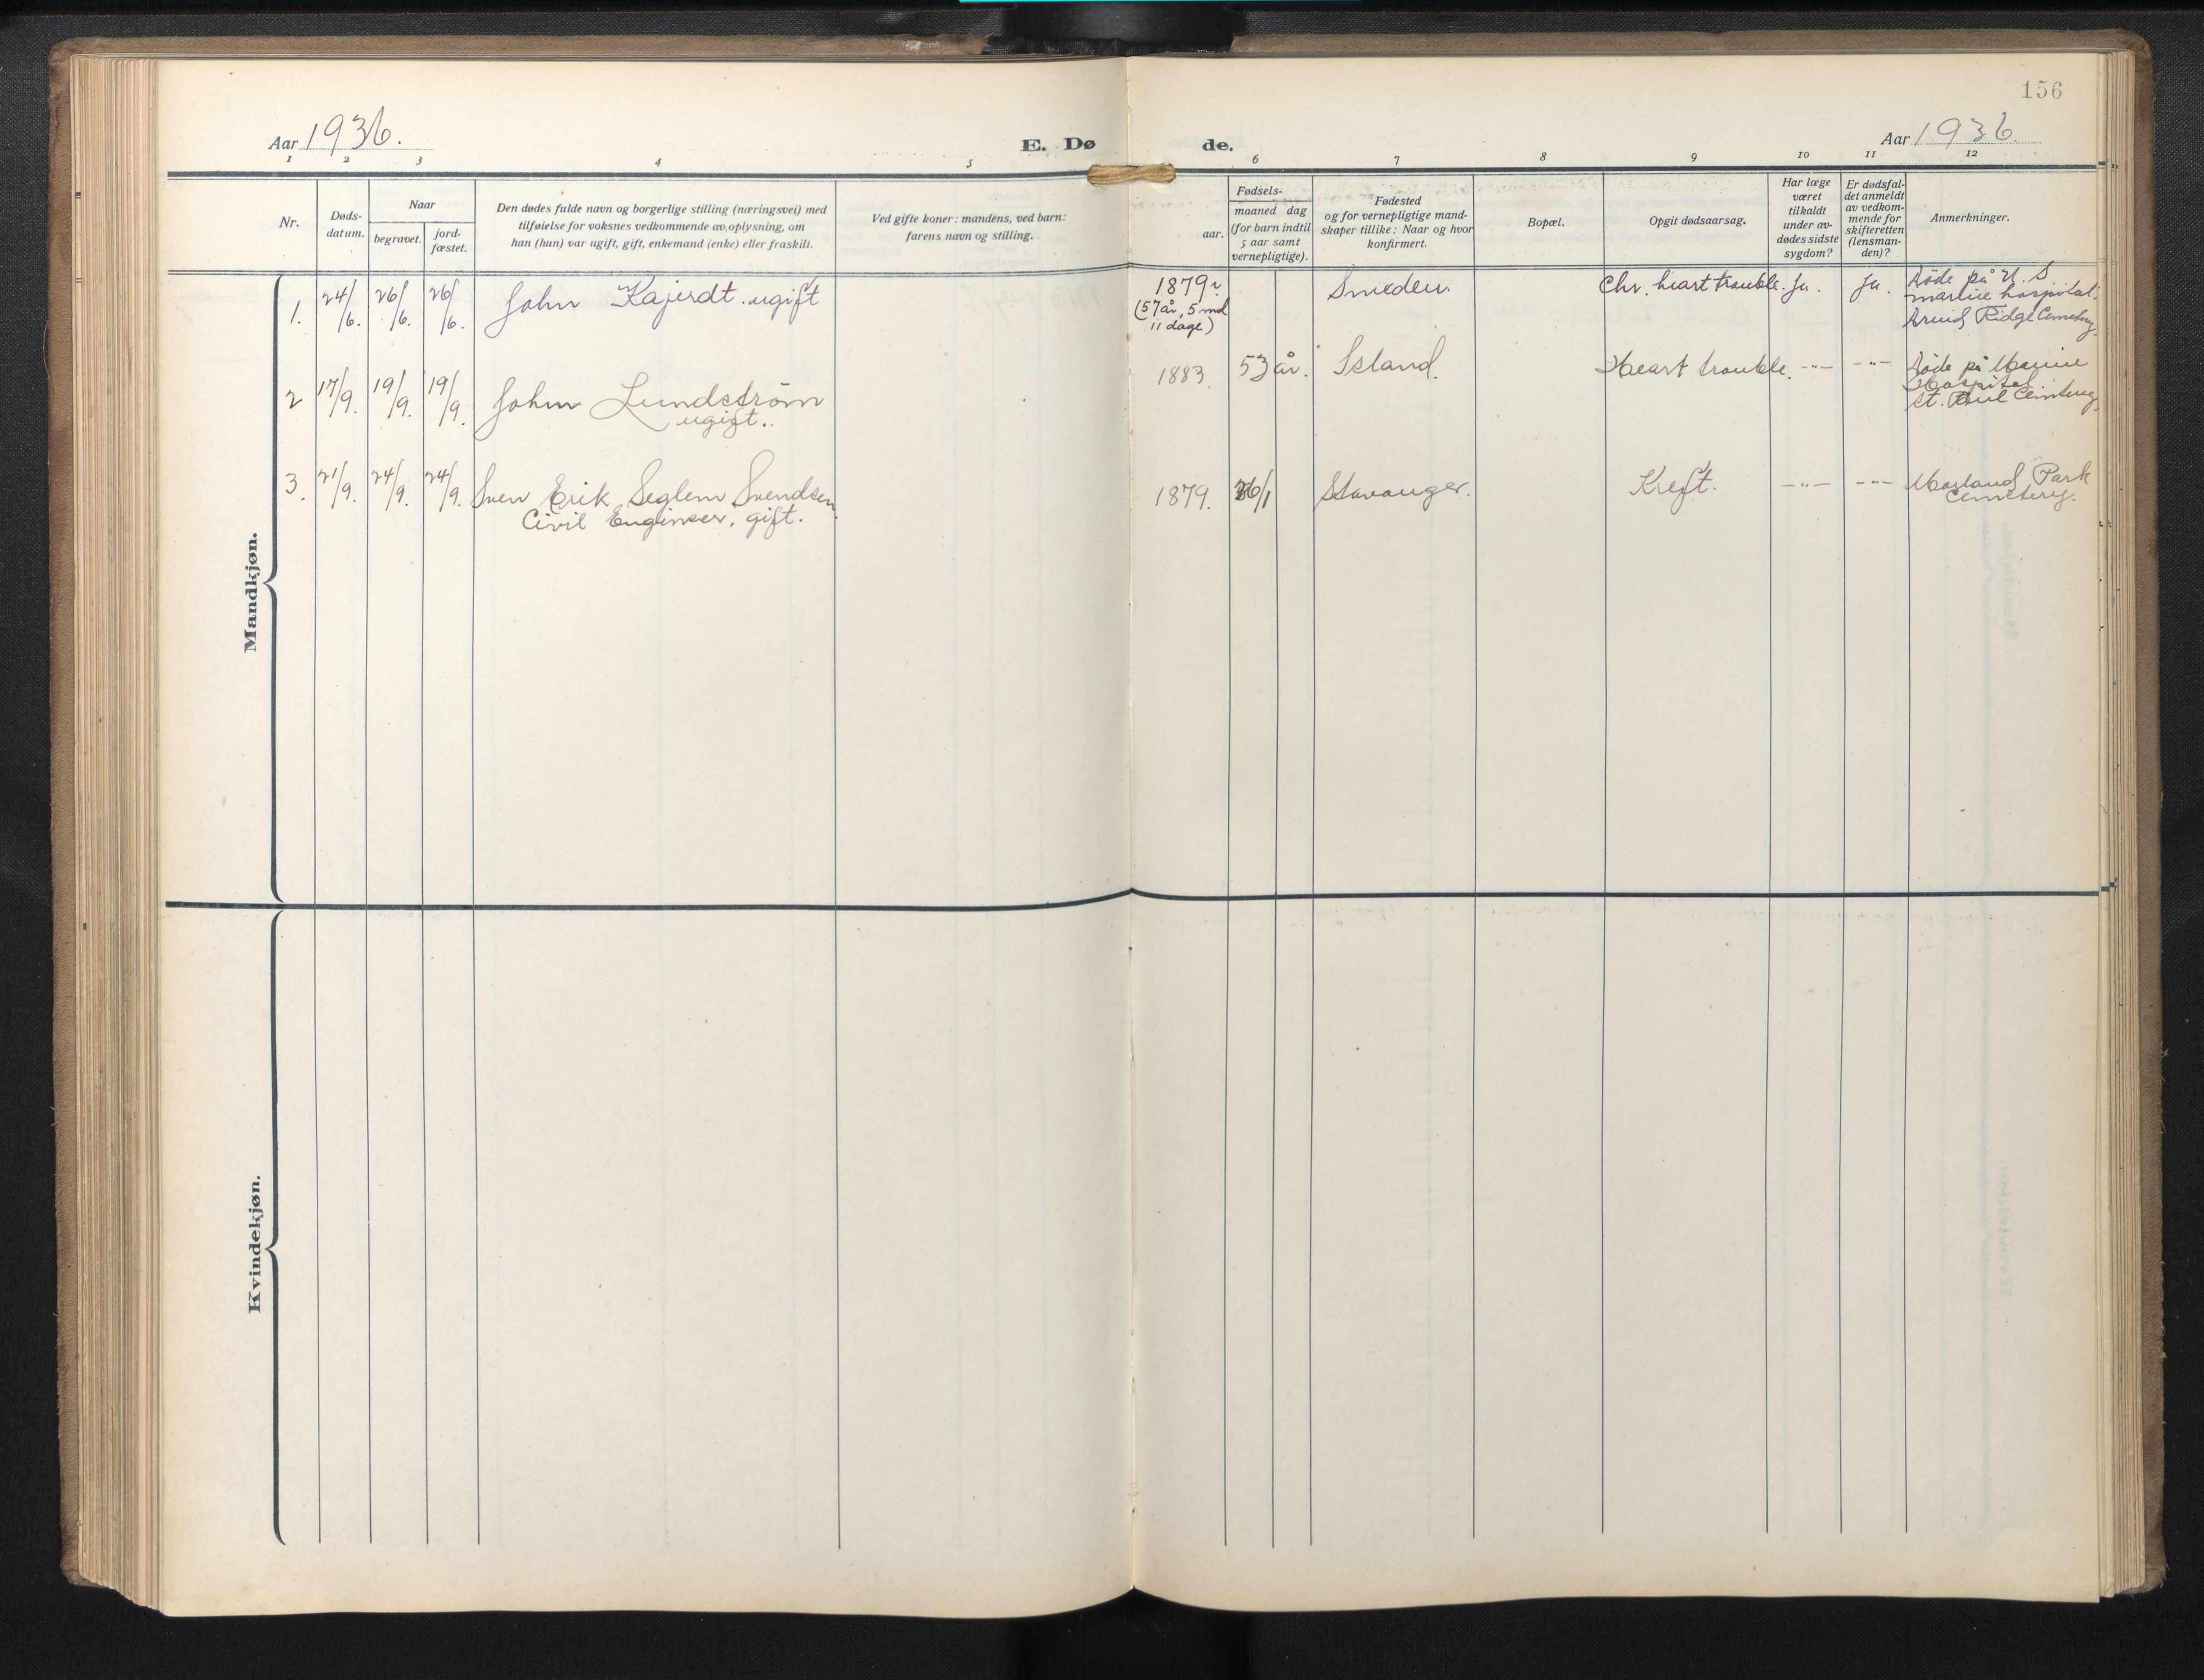 156
Aar 1936.
E. Dø
de.
Aar 1936.
1
2
3
4
5
6
7
8
9
10
11
12
Nr.
Døds-
datum.
Naar
begravet.
jord-
fæstet.
Den dødes fulde navn og borgerlige stilling (næringsvei) med
tilføielse for voksnes vedkommende av oplysning, om
han (hun) var ugift, gift, enkemand (enke) eller fraskilt.
Ved gifte koner: mandens, ved barn:
farens navn og stilling.
aar.
Fødsels-
maaned dag
(for barn indtil
5 aar samt
vernepligtige).
Fødested
og for vernepligtige mand-
skaper tillike: Naar og hvor
konfirmert.
Bopæl.
Opgit dødsaarsag.
Har læge
været
tilkaldt
under av-
dødes sidste
sygdom?
Er dødsfal-
det anmeldt
av vedkom-
mende for
skifteretten
(lensman-
den)?
Anmerkninger.
Mandkjøn.
1. 24/6. 26/6. 26/6. John Kajerdt. ugift
1879
(57 år, 5 md
11 dage)
Sweden.
Chr. heart trouble. Ja. Ja.
Døde på U. S
marine hospital.
Ridge Cemetery.
2 17/9. 19/9. 19/9. John Lundström
ugift.
1883. 53 år. Island. Heart trouble. -"- -"-
Døde på Marine
Hospital
St. Paul Cemetery.
3. 21/9. 24/9. 24/9. Sven Erik Seglem Svendsen.
Civil Engineer, gift.
1879. 26/1 Stavanger. Kreft. -"- -"-
Morland Park
Cemetery.
Kvindekjøn.